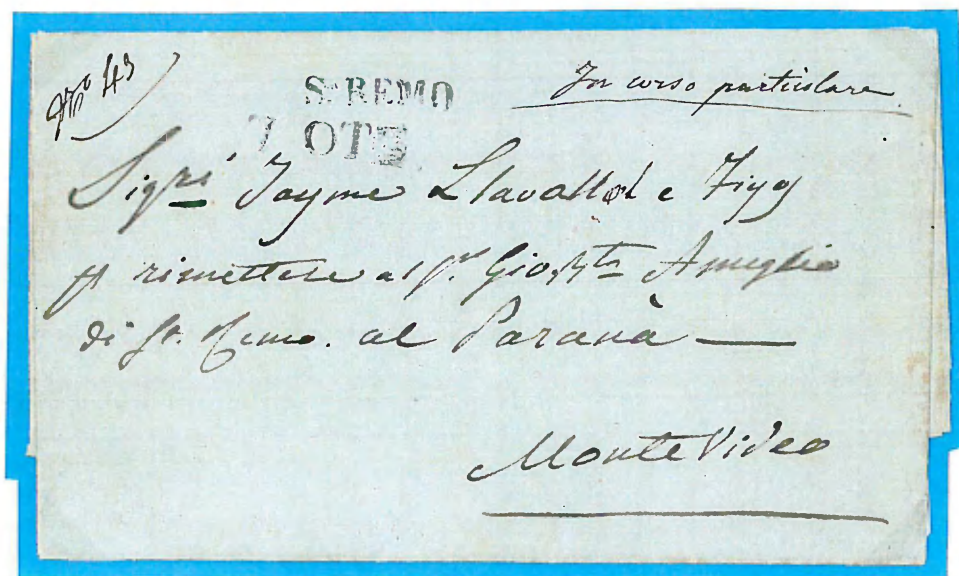 N.º 43
S. REMO
In corso particolare
7 OTE
Sigri Jayme Llavallol e Figs
rimettere al Sr. Gio. Bta Ameglio
di St. Remo. al Paranà —
MonteVideo